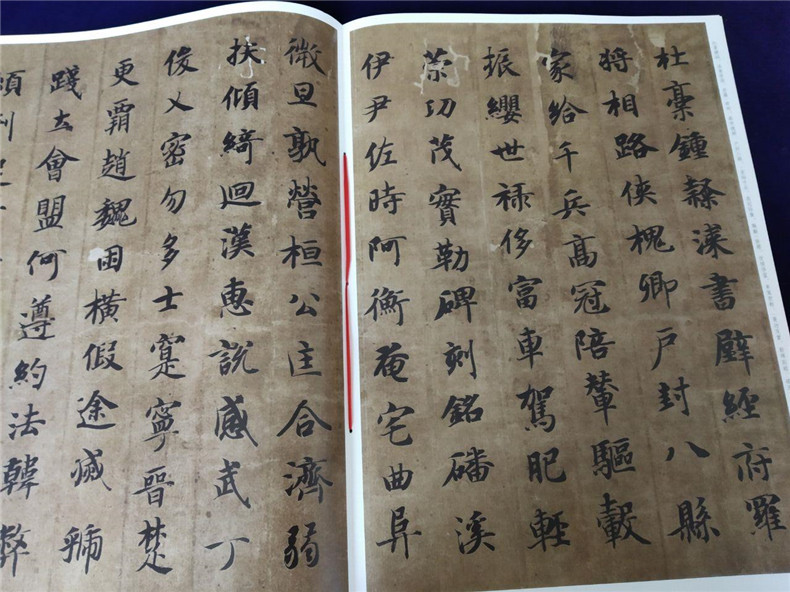 杜稾鍾隸漆書壁經府羅
将相路俠槐卿户封八縣
家給千兵髙冠陪輦驅轂
振纓世禄侈富車駕肥輕
策功茂實勒碑刻銘磻溪
伊尹佐時阿衡奄宅曲阜
微旦孰營桓公匡合濟弱
扶傾綺迴漢惠說感武丁
俊乂密勿多士寔寧晉楚
更霸趙魏困橫假途滅虢
踐土會盟何遵約法韓弊